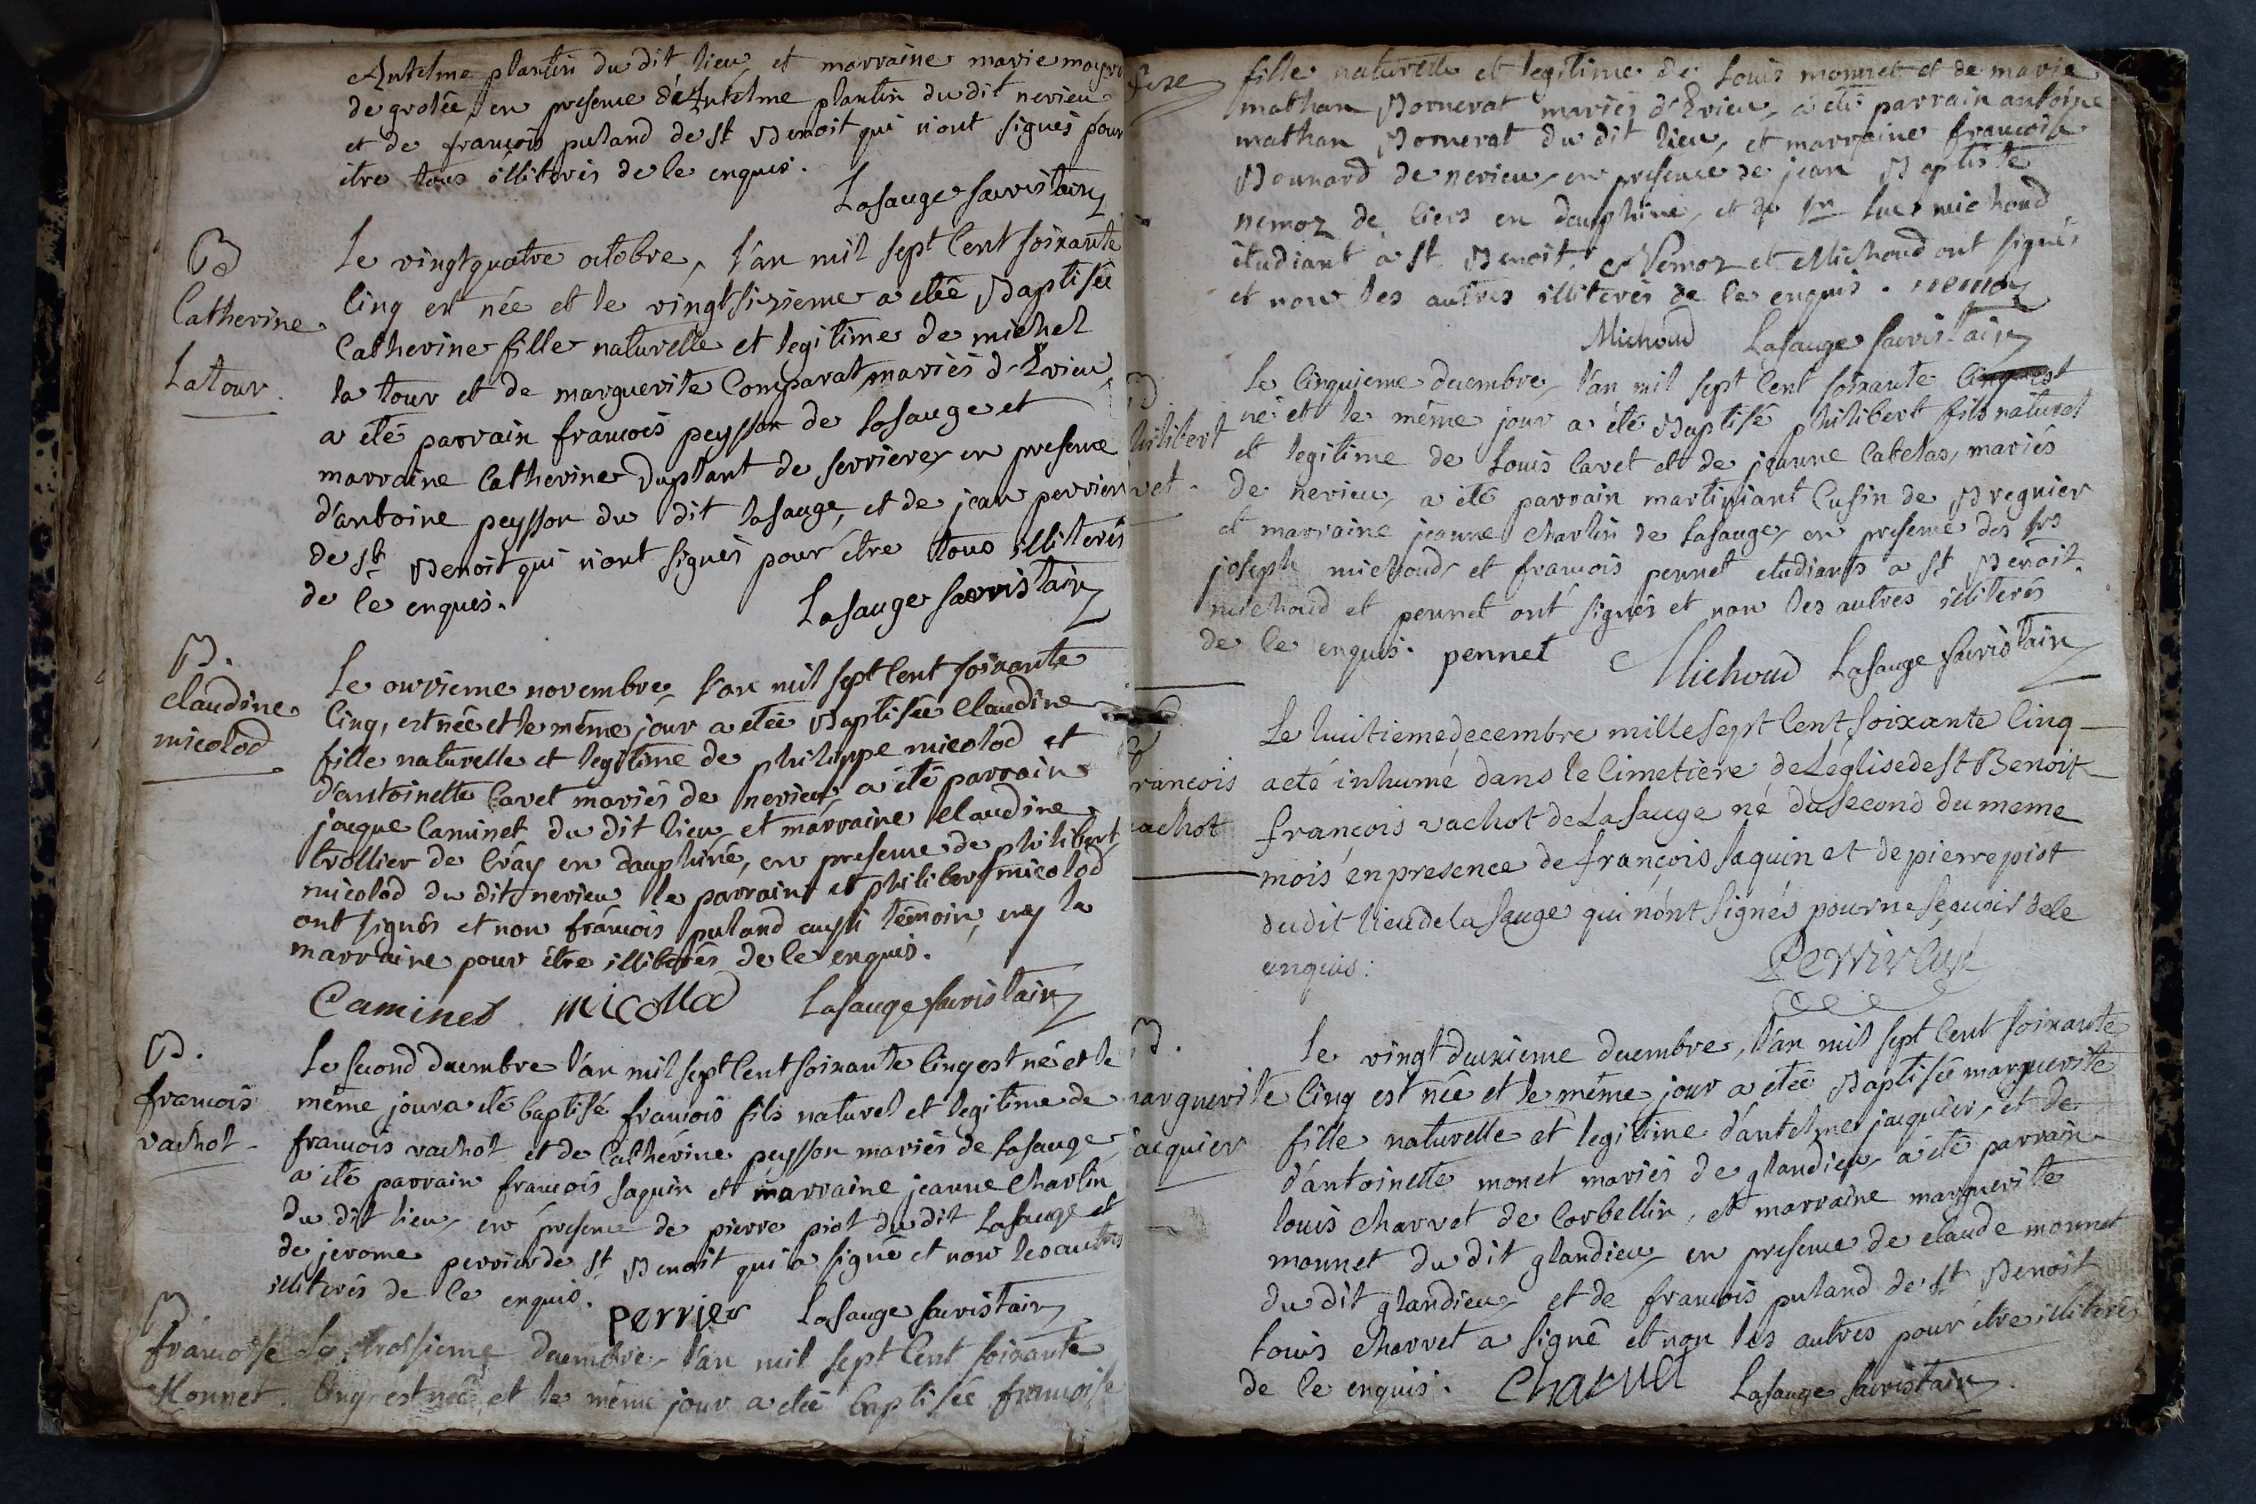 Antelme plantin du dit lieu, et marraine marie
de grolée, en presence d'Antelme plantin du dit nerieu
et de francois puland de st Benoit qui n'ont signés pour
être tous illiterés de ce enquis.
Lasauge sacristain
B
Catherine
Latour.
Le vingtquatre octobre, l'an mil sept cent soixante
cinq est née et le vingtsixieme a eté Baptisée
Catherine fille naturelle et legitime de michel
la tour et de marguerite Comparat, mariés d'Evieu
a eté parrain francois peysson de Lasauge et
marraine Catherine Duplant de serriere, en presence
d'antoine peysson du dit lasauge, et de jean perrier
de st Benoit qui n'ont signés pour être tous illiterés
de ce enquis.
Lasauge sacristain
B.
Claudine
micolod
Le onzieme novembre, l'an mil sept cent soixante
cinq, est née et le même jour a eté Baptisée Claudine
fille naturelle et legitime de philippe micolod et
d'antoinette Cavet mariés de nerieu, a eté parrain
jacque Caminet du dit lieu, et marraine Claudine
trollier de Cray en dauphiné, en presence de philibert
micolod du dit nerieu le parrain et philibert micolod
ont signés et non francois puland aussi témoin, ny la
marraine pour être illiterés de ce enquis.
Caminet micollod Lasauge sacristain
B.
francois
vachot
Le second decembre l'an mil sept cent soixante cinq est né et le
même jour a eté baptisé francois fils naturel et legitime de
francois vachot et de Catherine peysson mariés de Lasauge
a eté parrain francois saquin et marraine jeanne Charlin
du dit lieu, en presence de pierre piot du dit Lasauge et
de jerome perrier de st Benoit qui a signé et non les autres
illiterés de ce enquis.
perrier Lasauge sacristain
B
francoise
Monnet.
Le troisieme decembre, l'an mil sept cent soixante
cinq est née et le même jour a eté baptisée francoise
fille naturelle et legitime de Louis monnet et de marie
mathan Bornerat mariés d'Evieu, a eté parrain antoine
mathan Bornerat du dit lieu, et marraine francoise
Bonnard de nerieu, en presence de jean Baptiste
nemoz de Ciers en dauphiné, et de sr Luc michoud
étudiant à st Benoit. Nemoz et Michoud ont signés
et non les autres illiterés de ce enquis. nemoz
Michoud Lasauge sacristain
B
hilibert
vet.
Le cinquieme decembre, l'an mil sept cent soixante cinq est
né et le même jour a été Baptisé philibert fils naturel
et legitime de Louis Cavet et de jeanne Catelas, mariés
de nerieu, a été parrain martiniant Cusin de Bregnier
et marraine jeanne Charlin de Lasauge, en presence des srs
joseph michoud, et francois pennet etudiants a st Benoit.
michoud et pennet ont signés et non les autres illiterés
de ce enquis. pennet Michoud Lasauge sacristain
rancois
achot
Le huitieme decembre mille sept cent soixante cinq
a eté inhumé dans le cimetière de L'église de st Benoit
françois vachot de La Sauge né du second du meme
mois en presence de françois saquin et de pierre piot
du dit lieu de la sauge qui n'ont signés pour ne sçavoir de ce
enquis:
B.
arguerite
acquier
Le vingt deuxieme decembre, l'an mil sept cent soixante
cinq est née et le même jour a eté Baptisée marguerite
fille naturelle et legitime d'antelme jacquier, et de
d'antoinette monet mariés de glandieu, a eté parrain
louis charvet de Corbellin, et marraine marguerite
monnet du dit glandieu, en presence de claude monnet
du dit glandieu, et de francois puland de st Benoit
Louis charvet a signé et non les autres pour être illiterés
de ce enquis. Charvet Lasauge sacristain